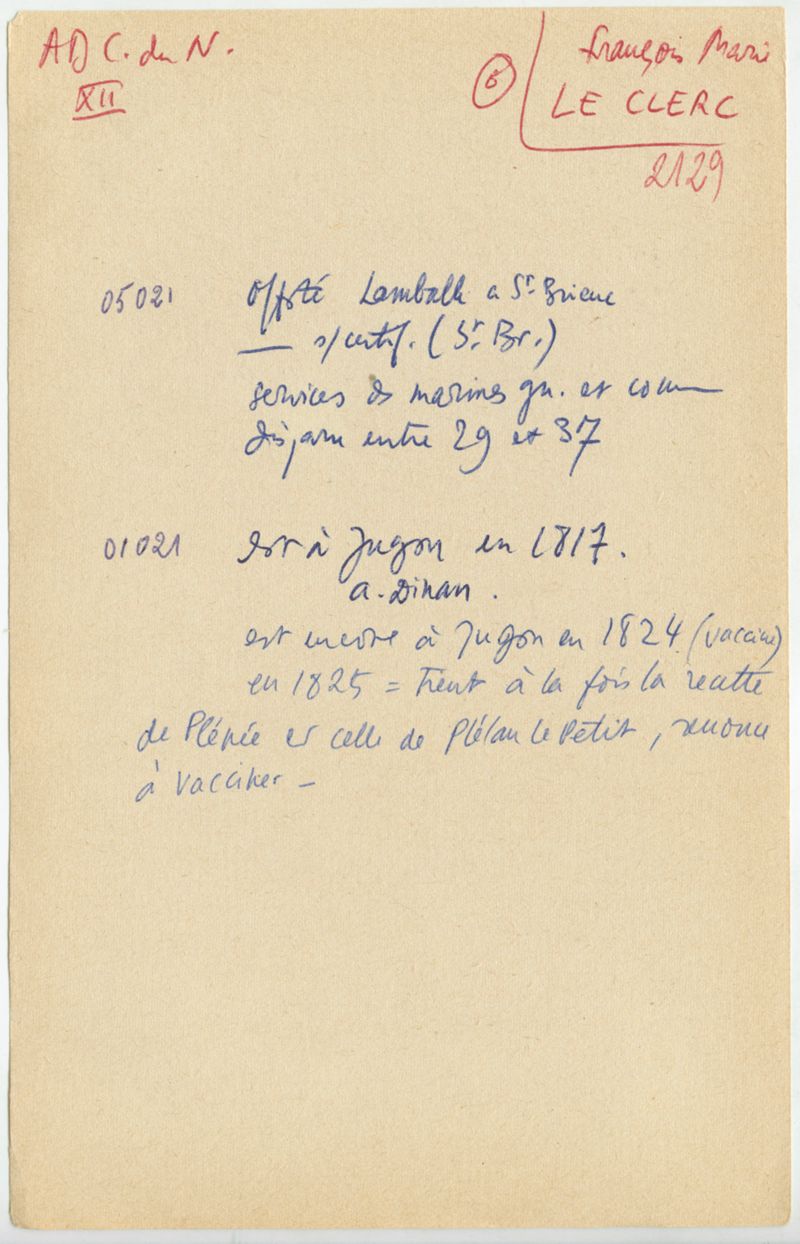 AD C. du N.
XII
6
François Marie
LE CLERC
2129
05021 Off. té Lamballe a St Brieuc
— s/certif. (St. Br.)
services ds marines gu. et comm
disparu entre 29 et 37
01021 est à Jugon en 1817.
a. Dinan.
est encore à Jugon en 1824 (vaccine)
en 1825 = tient à la fois la recette
de Plénée et celle de Plélan le Petit, renonce
à vacciner –